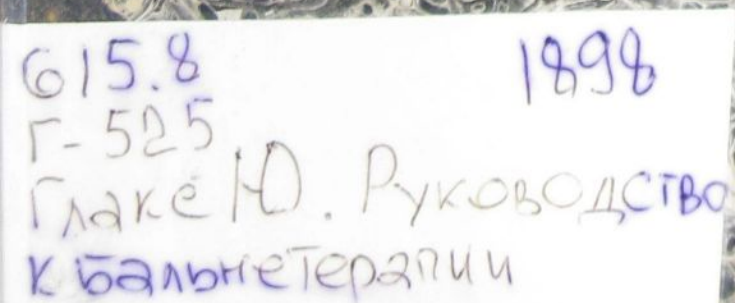 615.8 1898
Г-525
Глаке Ю. Руководство
к бальнетерапии